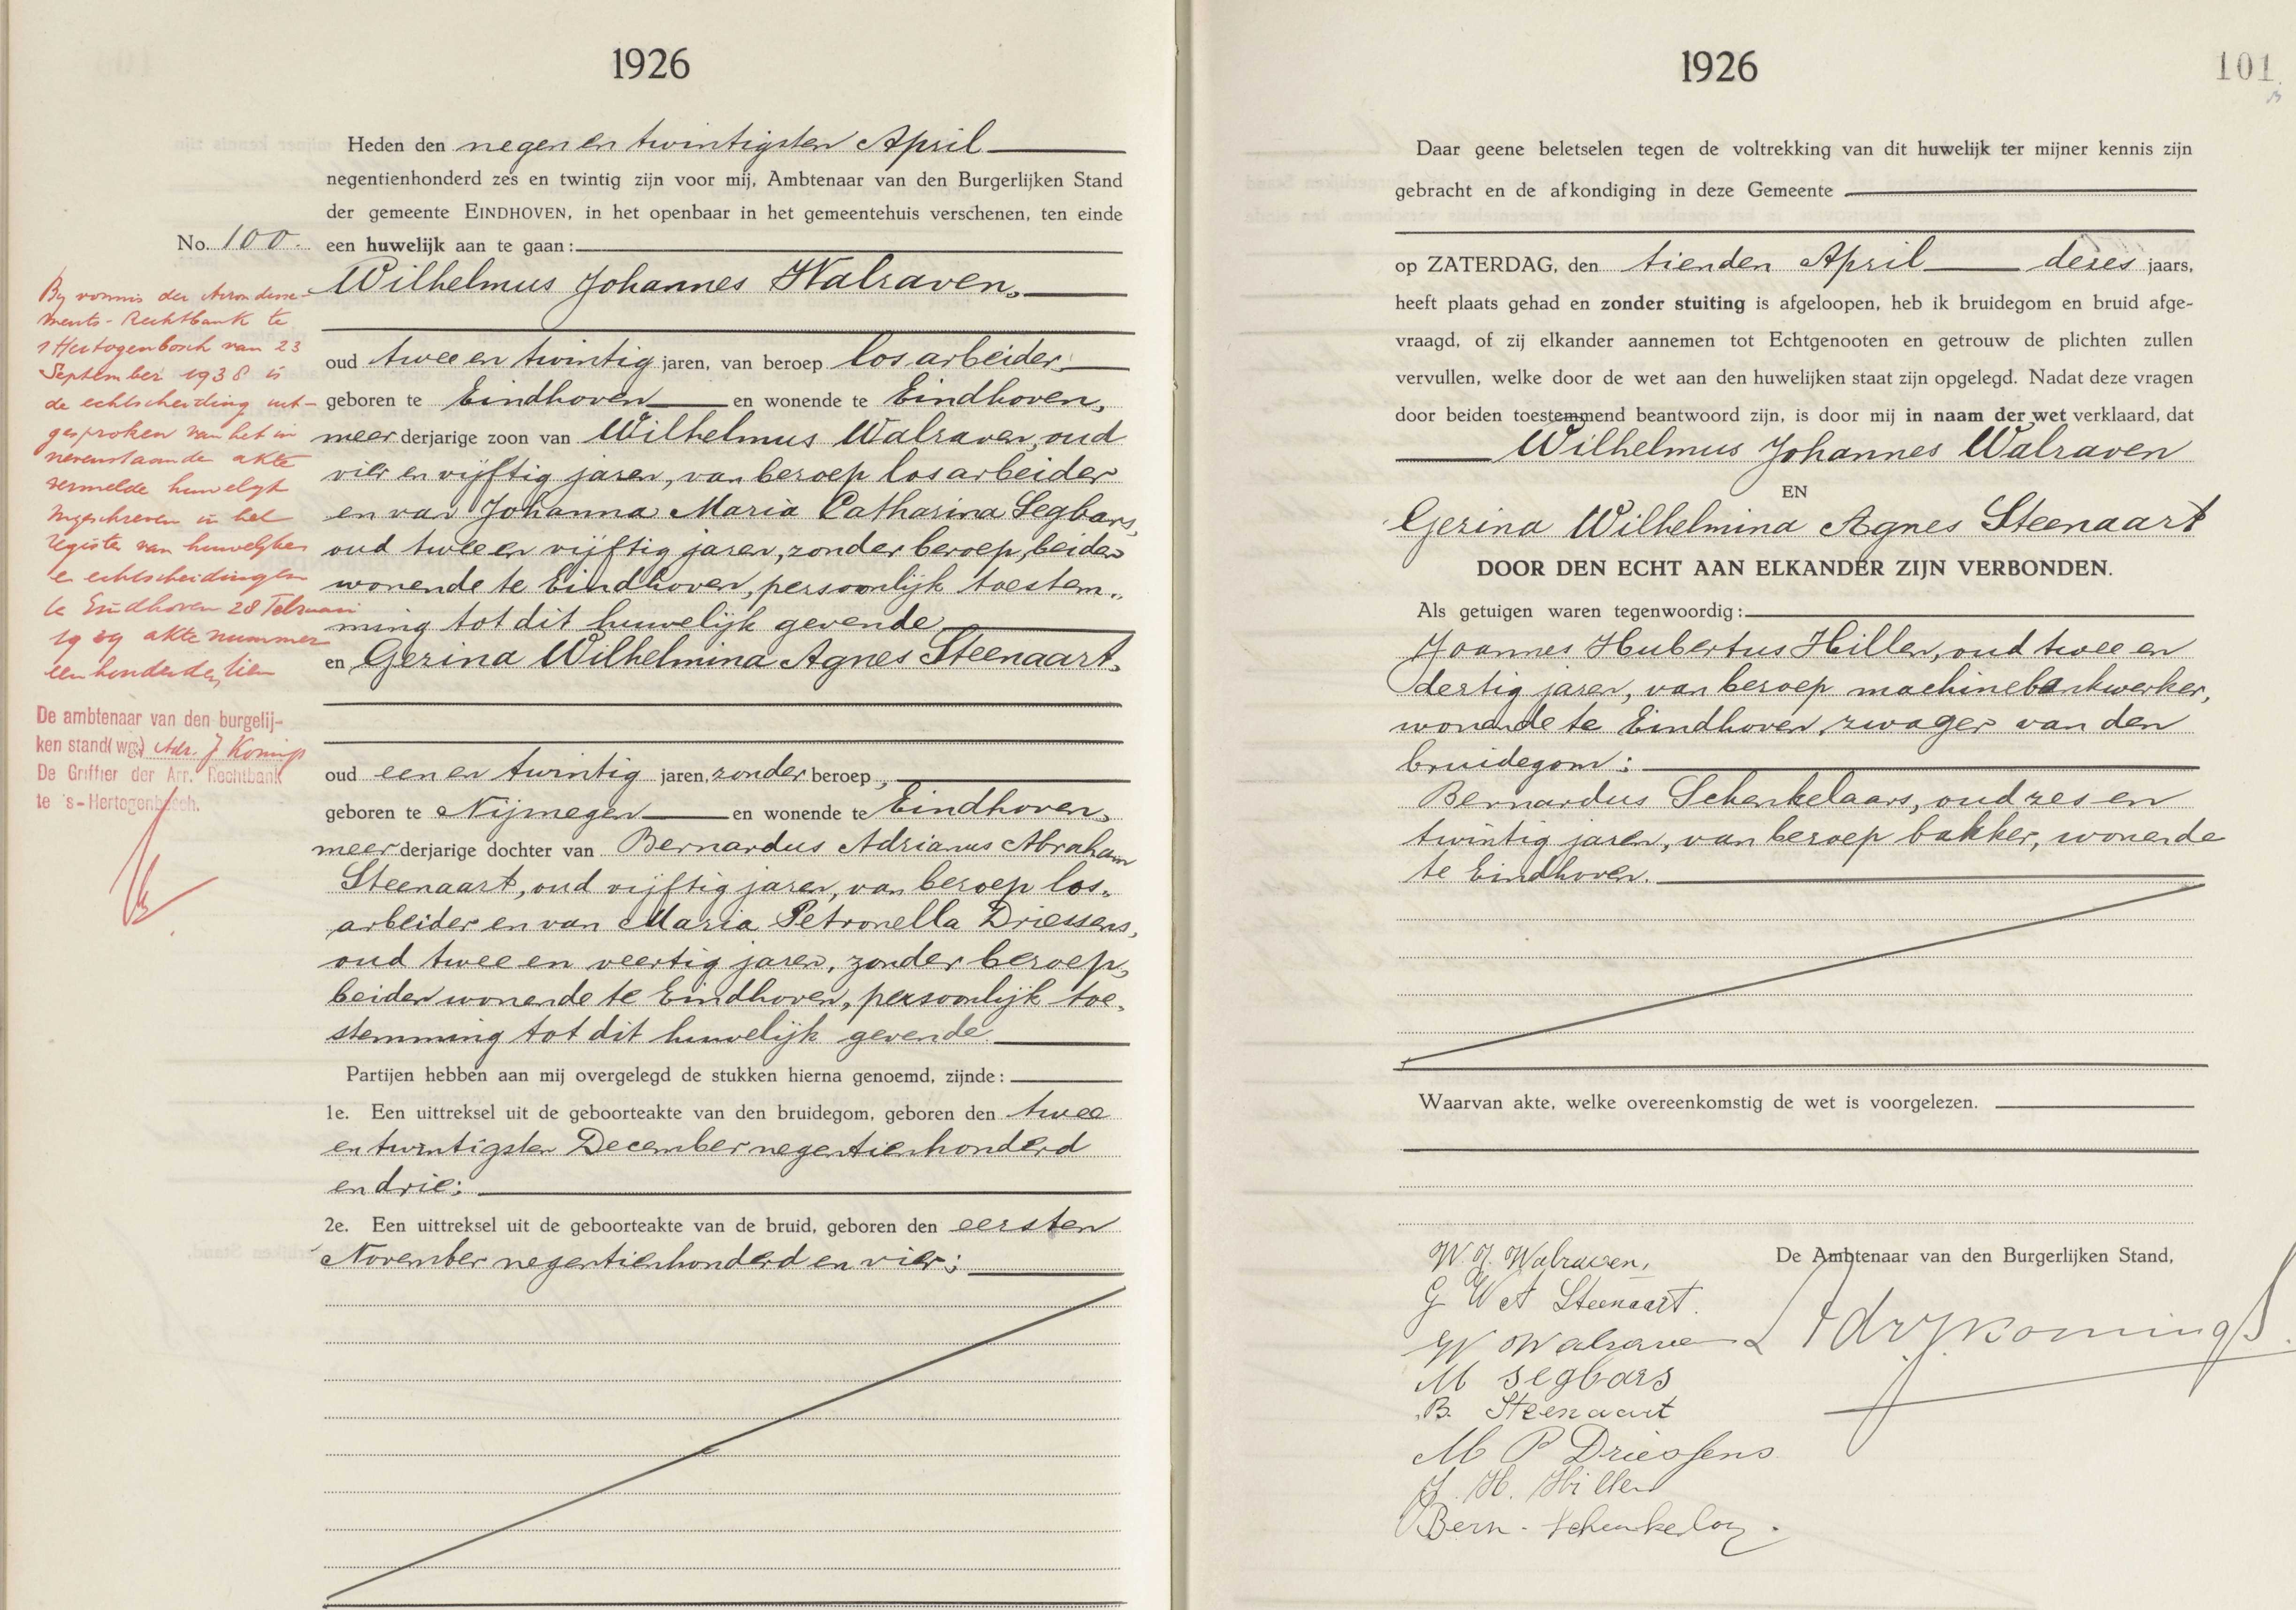 1926
Heden den negen en twintigsten April
negentienhonderd zes en twintig zijn voor mij, Ambtenaar van den Burgerlijken Stand
der gemeente EINDHOVEN, in het openbaar in het gemeentehuis verschenen, ten einde
No. 100. een huwelijk aan te gaan:
Wilhelmus Johannes Walraven,
oud twee en twintig jaren, van beroep los arbeider,
geboren te Eindhoven en wonende te Eindhoven,
meerderjarige zoon van Wilhelmus Walraven, oud
vier en vijftig jaren, van beroep los arbeider
en van Johanna Maria Catharina Segbars,
oud twee en vijftig jaren, zonder beroep, beiden
wonende te Eindhoven, persoonlijk toestem-
ming tot dit huwelijk gevende
en Gezina Wilhelmina Agnes Steenaart,
oud een en twintig jaren, zonder beroep,
geboren te Nijmegen en wonende te Eindhoven,
meerderjarige dochter van Bernardus Adrianus Abraham
Steenaart, oud vijftig jaren, van beroep los-
arbeider en van Maria Petronella Driessens,
oud twee en veertig jaren, zonder beroep,
beiden wonende te Eindhoven, persoonlijk toe-
stemming tot dit huwelijk gevende.
Partijen hebben aan mij overgelegd de stukken hierna genoemd, zijnde:
1e. Een uittreksel uit de geboorteakte van den bruidegom, geboren den twee
en twintigsten December negentienhonderd
en drie;
2e. Een uittreksel uit de geboorteakte van de bruid, geboren den eersten
November negentienhonderd en vier;
By vonnis der Arrondisse-
ments-Rechtbank te
's Hertogenbosch van 23
September 1938 is
de echtscheiding uit-
gesproken van het in
nevenstaande akte
vermelde huwelyk
Ingeschreven in het
register van huwelyken
en echtscheidingen
te Eindhoven 28 Februari
1939 akte nummer
een honderd en tien
De ambtenaar van den burgelij-
ken stand (wg.) Adr. J Konings
De Griffier der Arr. Rechtbank
te 's-Hertogenbosch.
1926
101
Daar geene beletselen tegen de voltrekking van dit huwelijk ter mijner kennis zijn
gebracht en de afkondiging in deze Gemeente
op ZATERDAG, den tienden April dezes jaars,
heeft plaats gehad en zonder stuiting is afgeloopen, heb ik bruidegom en bruid afge-
vraagd, of zij elkander aannemen tot Echtgenooten en getrouw de plichten zullen
vervullen, welke door de wet aan den huwelijken staat zijn opgelegd. Nadat deze vragen
door beiden toestemmend beantwoord zijn, is door mij in naam der wet verklaard, dat
Wilhelmus Johannes Walraven
EN
Gezina Wilhelmina Agnes Steenaart
DOOR DEN ECHT AAN ELKANDER ZIJN VERBONDEN.
Als getuigen waren tegenwoordig:
Joannes Hubertus Hillen, oud twee en
dertig jaren, van beroep machinebankwerker,
wonende te Eindhoven, zwager van den
bruidegom;
Bernardus Schenkelaars, oud zes en
twintig jaren, van beroep bakker, wonende
te Eindhoven.
Waarvan akte, welke overeenkomstig de wet is voorgelezen.
De Ambtenaar van den Burgerlijken Stand,
W. J. Walraven,
G W A Steenaart.
W Walraven
Adr J Konings
M Segbars
B. Steenaart
M P Driessens
J. H. Hillen
Bern. Schenkelaars